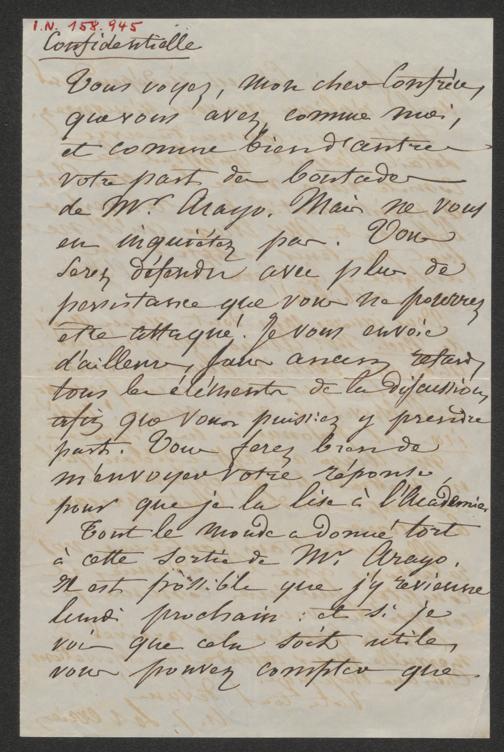 I.N. 158.945
Confidentielle
Vous voyez, mon cher Confrère,
que vous avez, comme moi,
et comme bien d'autres
votre part de boutades
de Mr. Arago. Mais ne vous
en inquiétez pas. Vous
serez défendu avec plus de
persistance que vous ne pourrez
etre attaqué. Je vous envoie
d'ailleurs, sans aucun retard,
tous les éléments de la discussion,
afin que vous puissiez y prendre
part. Vous ferez bien de
m'envoyer votre réponse
pour que je la lise à l'Académie.
Tout le monde a donné tort
à cette sortie de Mr. Arago.
Il est possible que j'y revienne
lundi prochain: et si je
vois que cela soit utile,
vous pouvez compter que